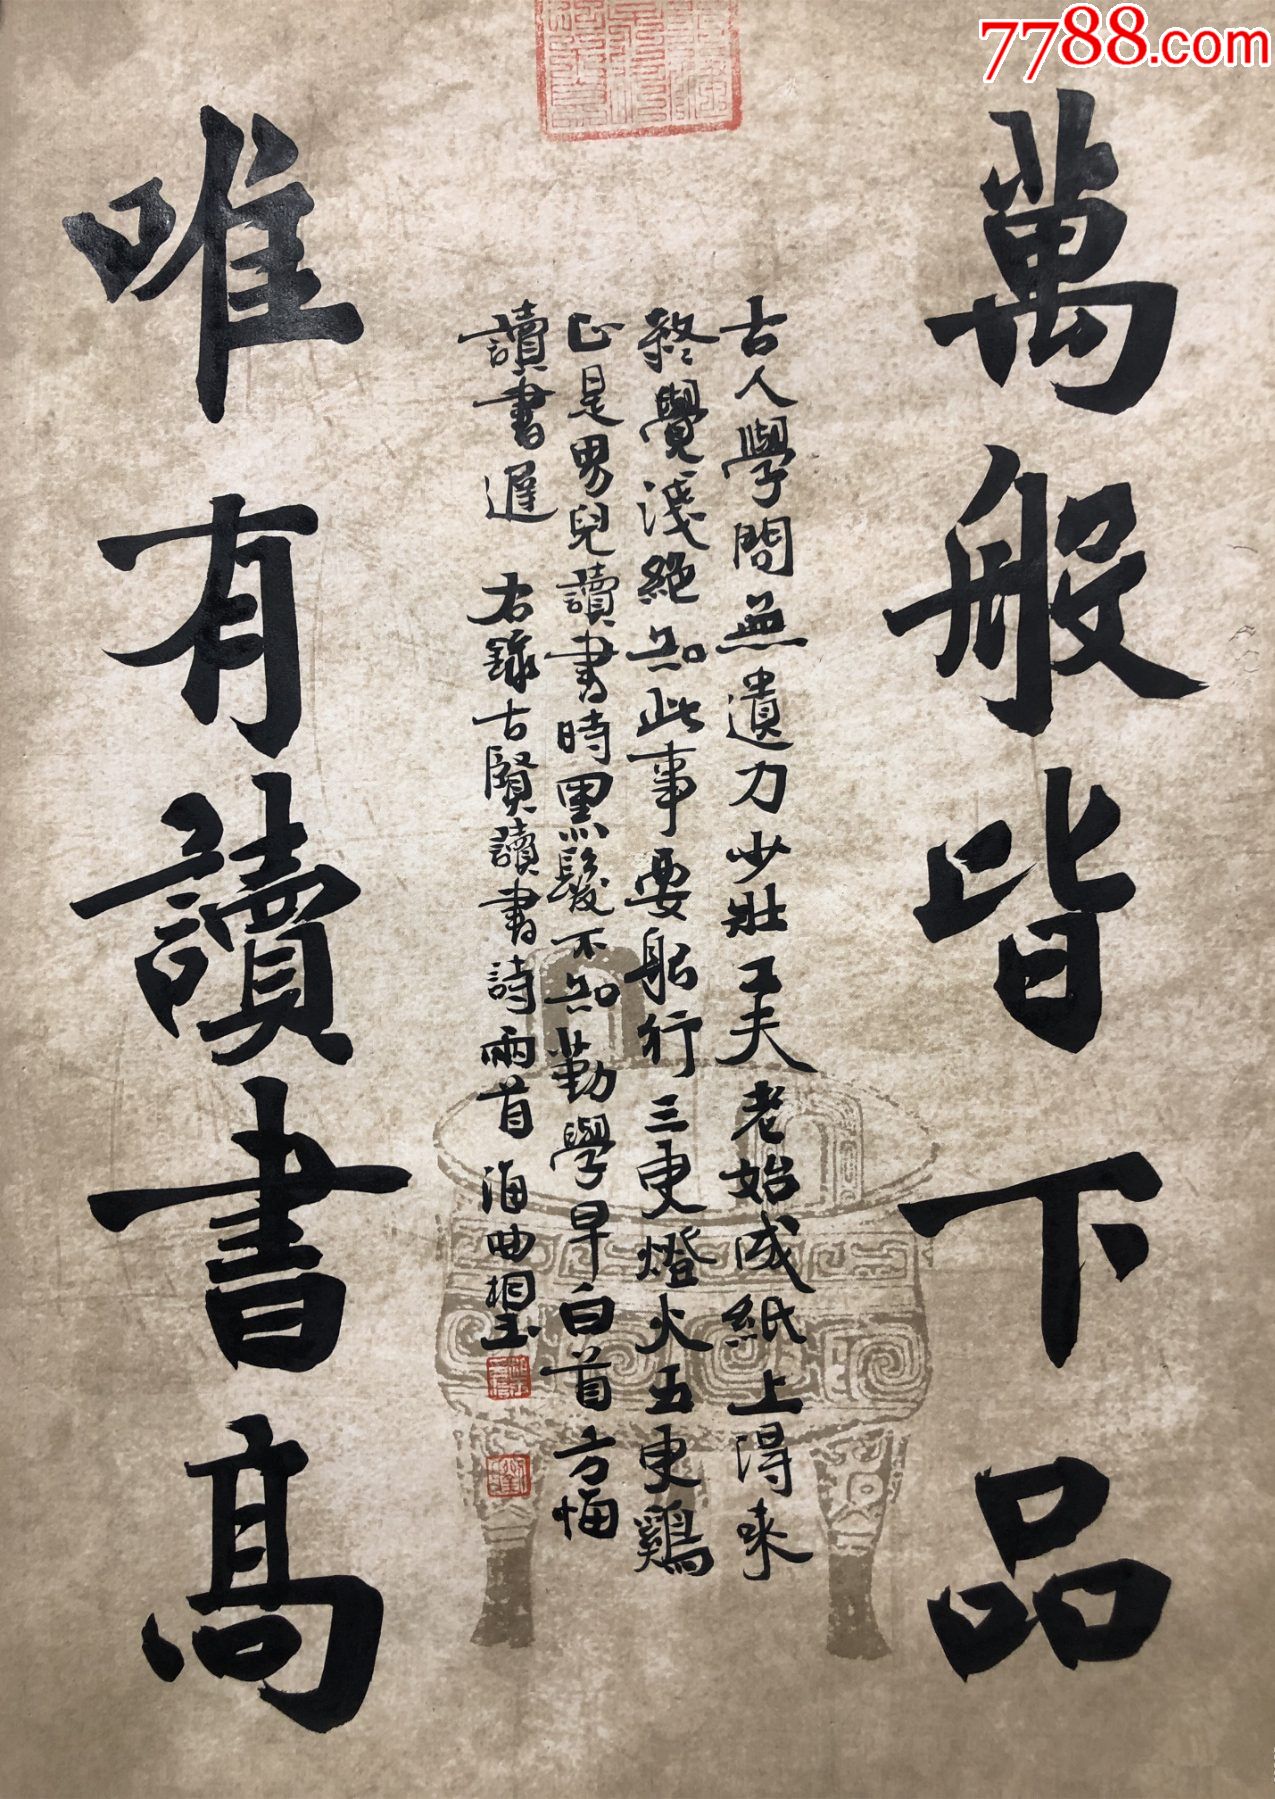 7788.com
萬般皆下品
古人學問無遺力少壯工夫老始成紙上得来
終覺淺絕知此事要躬行三更燈火五更鷄
正是男兒讀書時黑髮不知勤學早白首方悔
讀書遲 右錄古賢讀書詩兩首 海曲
唯有讀書高